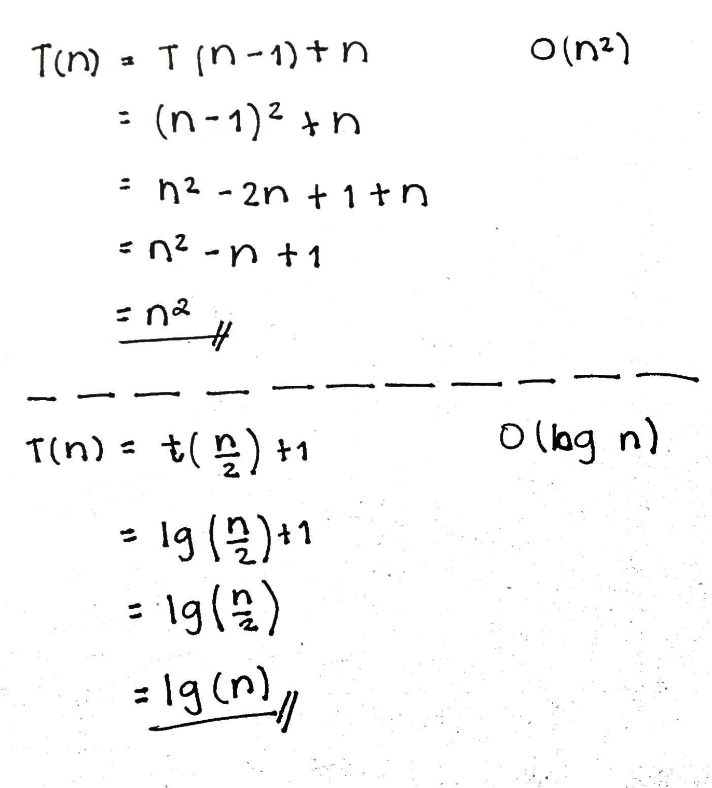 T(n) = T(n-1)+n O(n²)
= (n-1)² +n
= n² -2n + 1 +n
= n² -n +1
= n²
T(n) = t(n/2) +1 O(log n)
= lg(n/2)+1
= lg(n/2)
= lg(n)